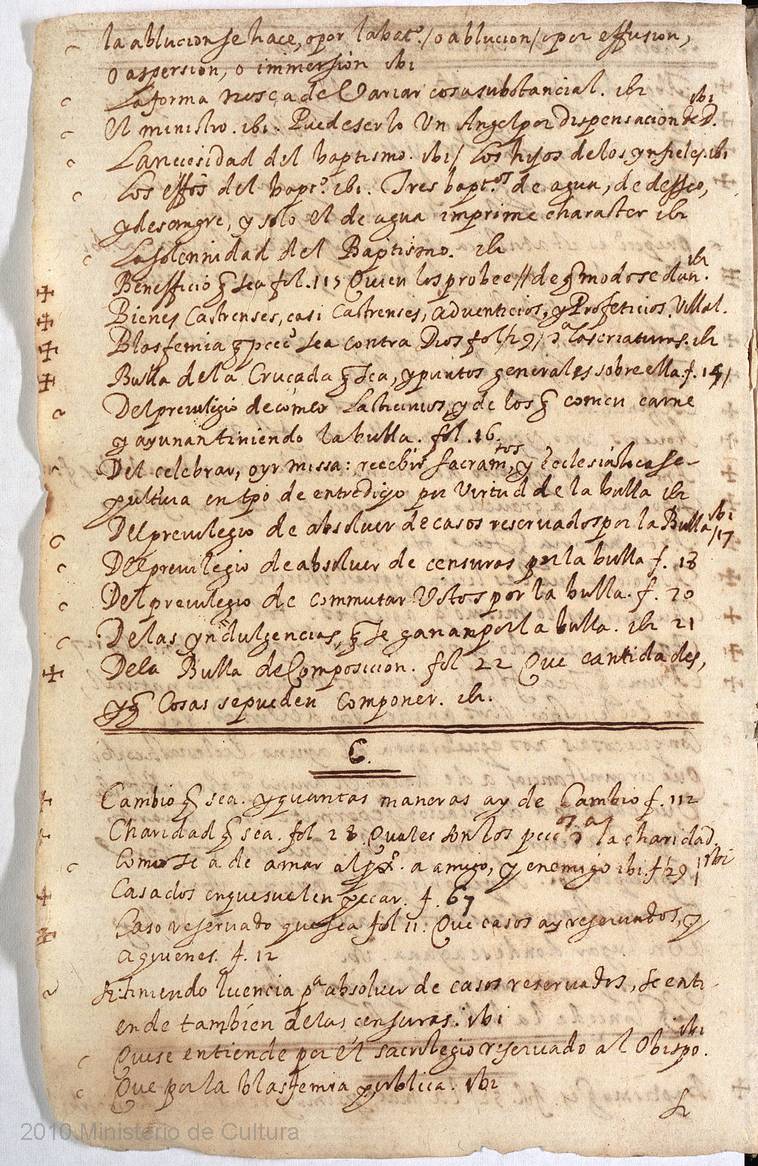 la ablucion se hace, o por labat.º / o ablucion / o por effusion,
o aspersion, o immersion ibi
La forma no se a de Variar cosa substancial. ibi
El ministro. ibi. Puede serlo Un Angel por dispensacion de D. ibi
La necesidad del baptismo. ibi / Los hijos de los ynfieles. ibi
Los effos del bapt.º ibi. Tres bapt.os de agua, de desseo,
y de sangre, y solo el de agua imprime character ibi
La solennidad del Baptismo. ibi
Benefficio q̃ sea fol. 115 Quien los probee // de q̃ modo se dan. ibi
Bienes Castrenses, casi Castrenses, adventicios, y Profeticios. Villal.
Blasfemia q̃ pecc.º sea contra Dios fol 29 / las criaturas. ibi
Bulla de la Crucada q̃ sea, y puntos generales sobre ella. f. 15 /
Del previlegio de comer Lacticinios, y de los q̃ comen carne
y ayunan tiniendo la bulla. fol. 16.
Del celebrar, oyr missa: recebir sacram.tos, y ecclesiastica se-
pultura en tpo de entredigo por Virtud de la bulla ibi
Del previlegio de absolver de casos reservados por la Bulla ibi / 17
Del previlegio de absolver de censuras por la bulla f. 18
Del previlegio de commutar Votos por la bulla. f. 20
De las yndulgencias, q̃ se ganan por la bulla. ibi 21
De la Bulla de Composicion. fol 22 Que cantidades,
y q̃ Cosas se pueden Componer. ibi.
C.
Cambio q̃ sea. y quantas maneras ay de Cambio f. 112
Charidad q̃ sea. fol 28 Quales son los pecc.os la charidad ibi
Como se a de amar al pxº. a amigo, y enemigo ibi. f. 29 /
Casados en que suelen pecar. f. 67
Caso reservado que sea fol 11. Que casos ay reservados, y
a quienes. f. 12
Si tiniendo licencia pª absolver de casos reservados, se enti-
ende tambien de las censuras. ibi
Que se entiende por el sacrilegio reservado al Obispo. ibi
Que por la blasfemia publica. ibi
2010 Ministerio de Cultura